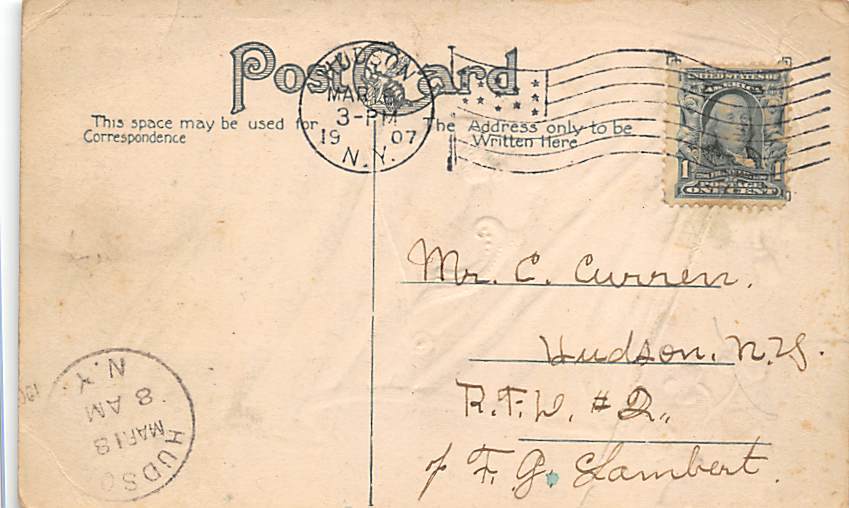 Post Card
HUDSON
MAR
3-PM
19 07
N.Y.
This space may be used for
Correspondence
The Address only to be
Written Here
UNITED STATES OF
1 1
POSTAGE
ONE CENT
Mr. C. Curren.
Hudson, N.Y.
R.F.D. #2,
c/o F. G. Lambert.
HUDSO
MAR 18
8 AM
N.Y.